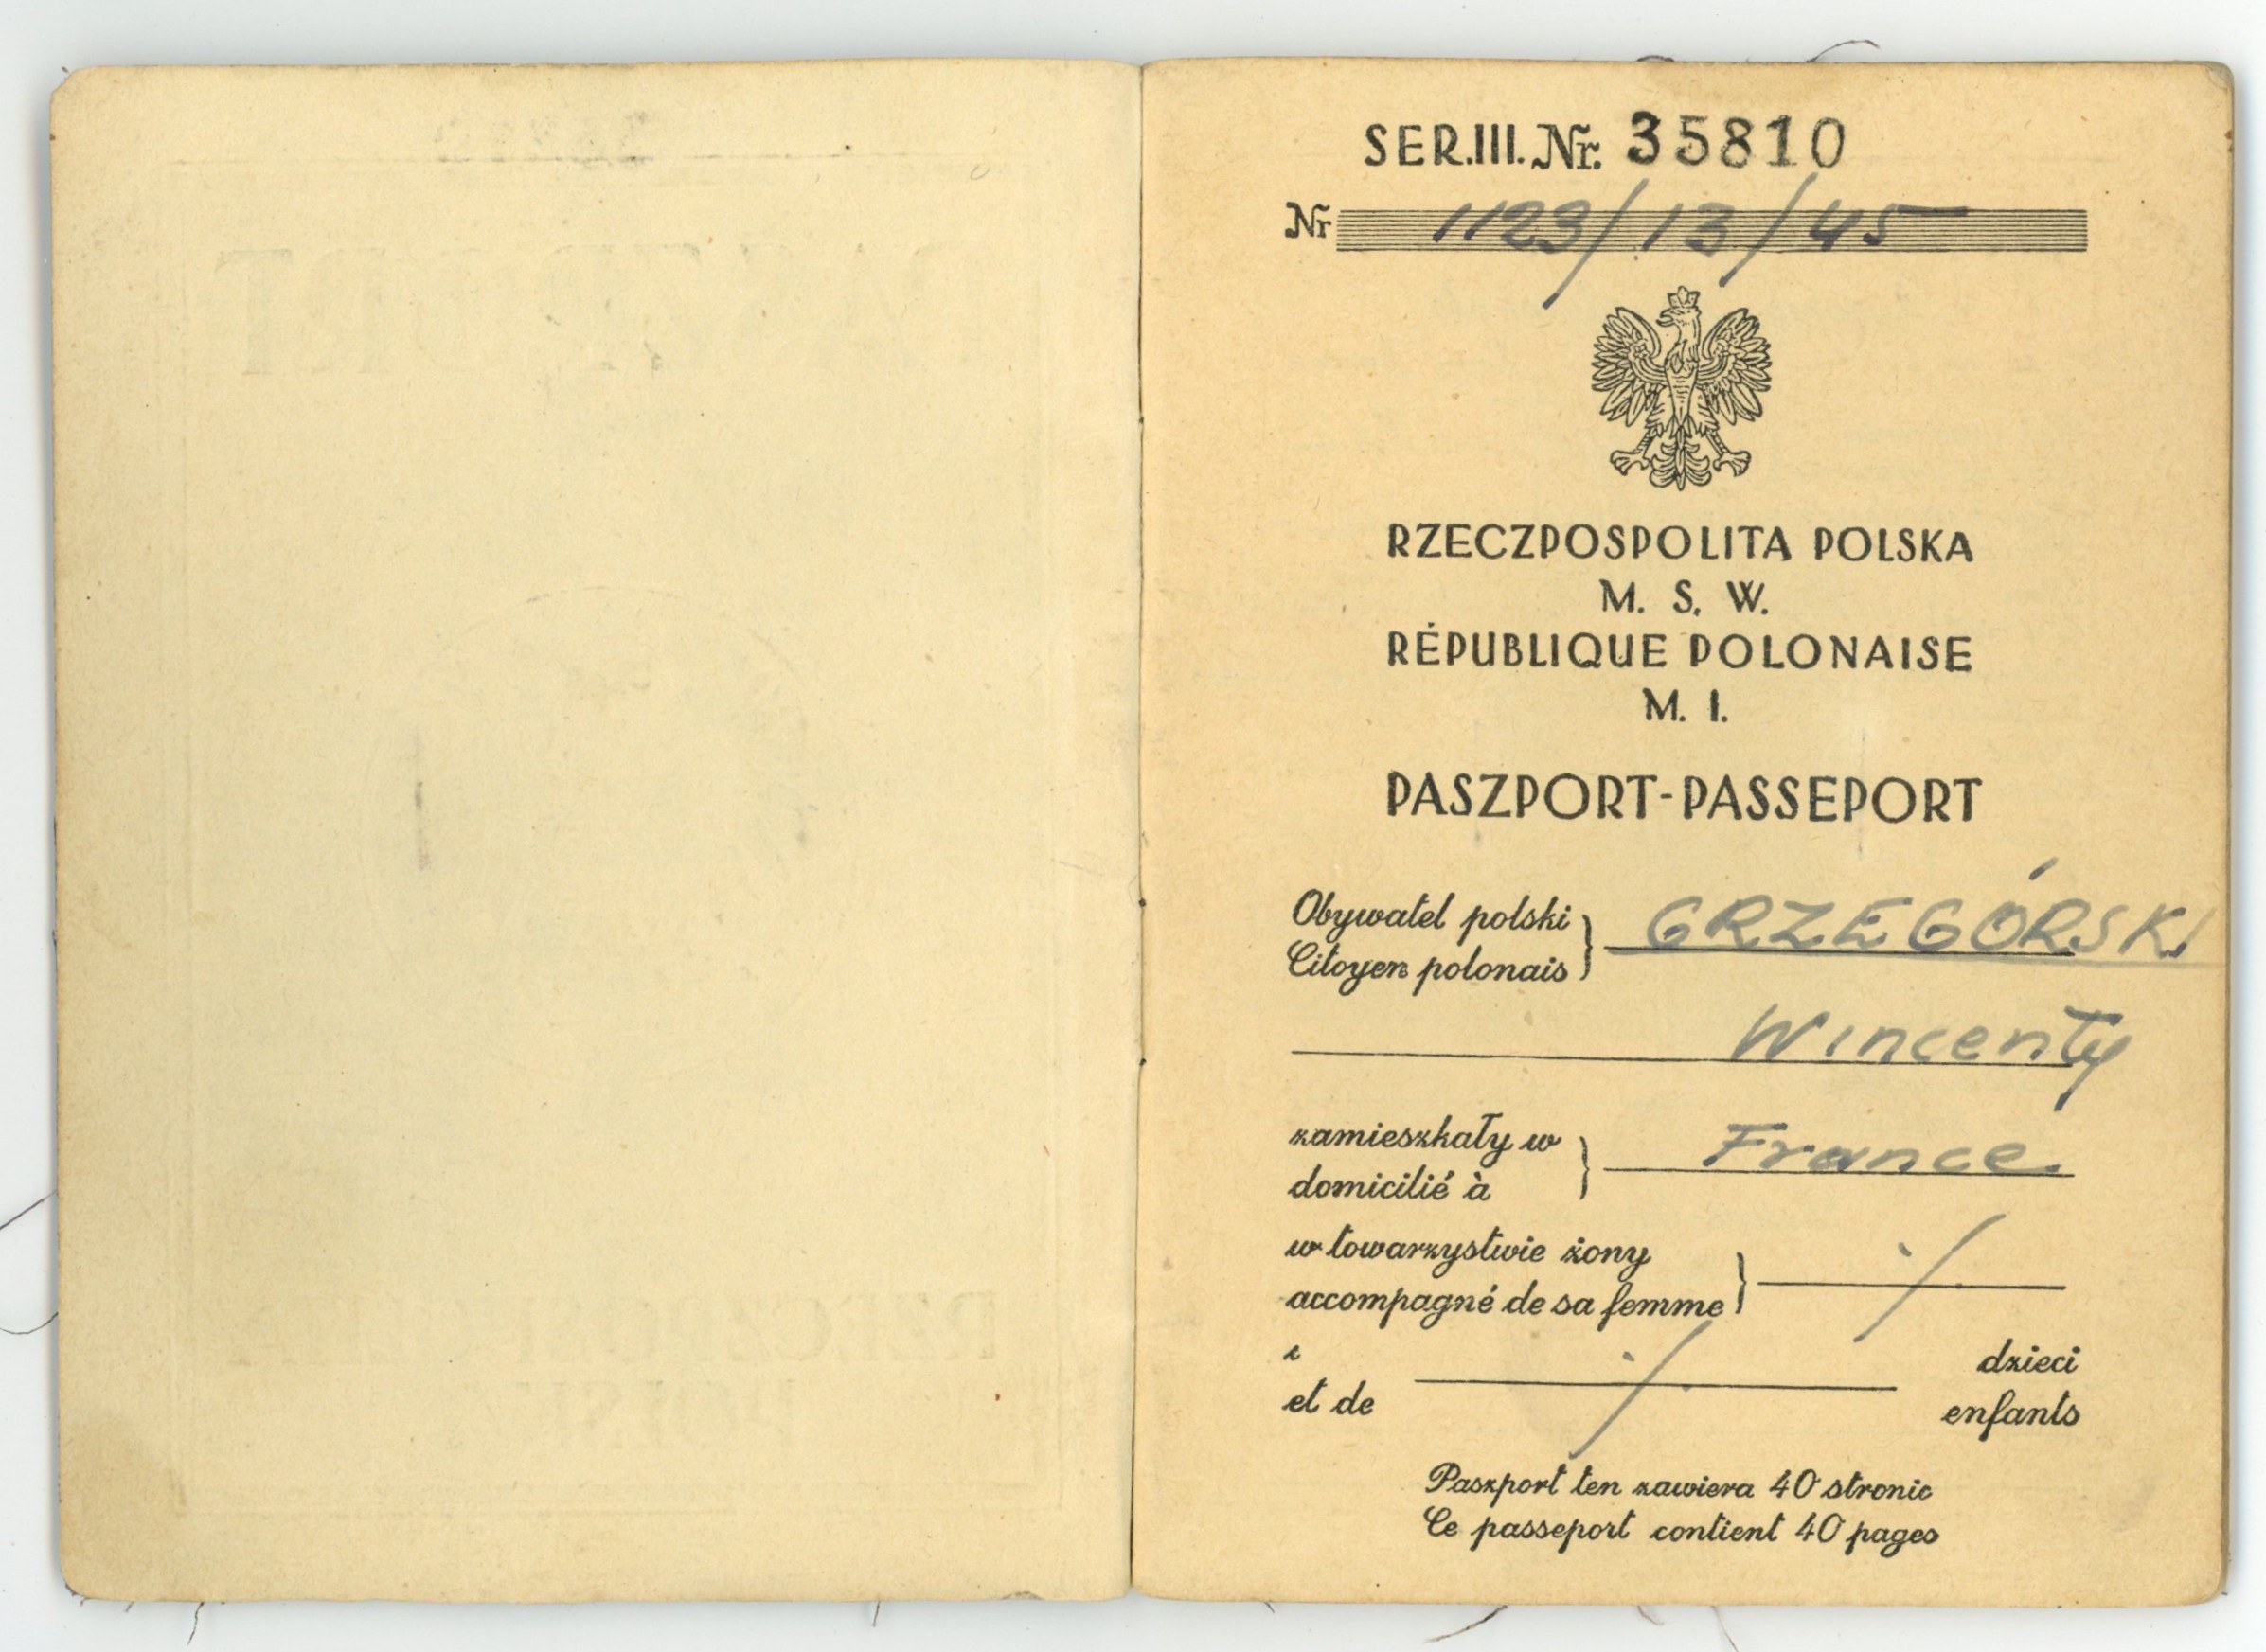 SER.III. Nr. 35810
Nr 1123/13/45
RZECZPOSPOLITA POLSKA
M. S. W.
RÉPUBLIQUE POLONAISE
M. I.
PASZPORT-PASSEPORT
Obywatel polski
Citoyen polonais
GRZEGÓRSKI
Wincenty
zamieszkały w
domicilié à
France
w towarzystwie żony
accompagné de sa femme
·/.
i
et de
·/.
dzieci
enfants
Paszport ten zawiera 40 stronic
Ce passeport contient 40 pages